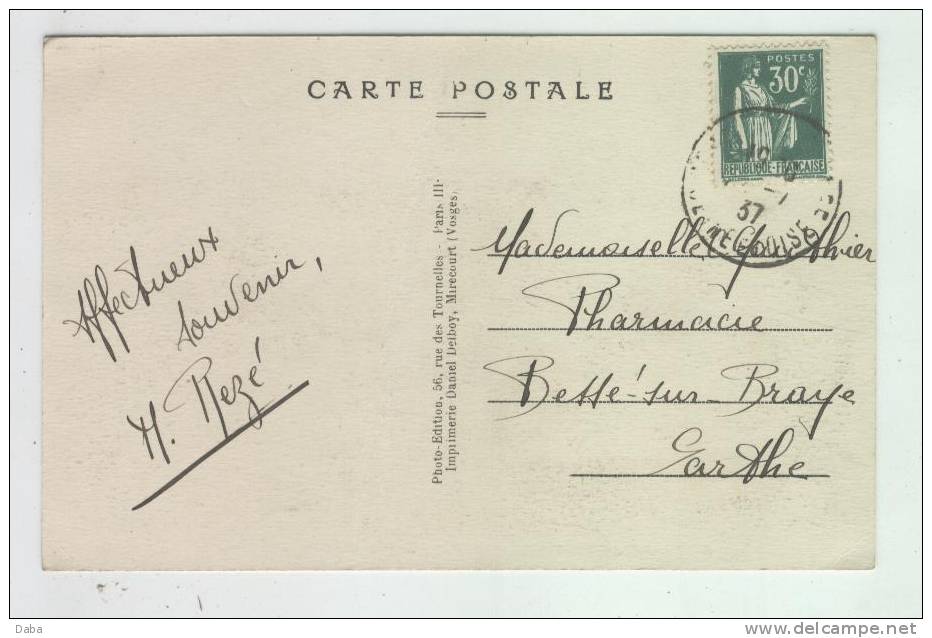 CARTE POSTALE
POSTES
30c
REPUBLIQUE-FRANCAISE
37
Affectueux
souvenir,
Rezé
Photo-Edition, 56, rue des Tournelles - Paris III
Imprimerie Daniel Delboy, Mirecourt (Vosges)
Mademoiselle
Pharmacie
Bessé-sur-Braye
Sarthe
Daba
www.delcampe.net